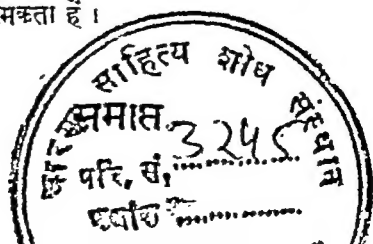 सकता है ।
साहित्य शोध संस्थान
समाप्त
परि. सं. 3245